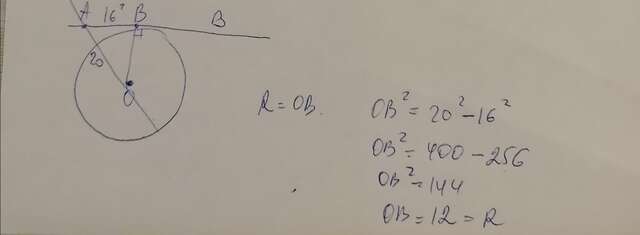 A 16² B B
20
O
R = OB.
OB² = 20² - 16²
OB² = 400 - 256
OB² = 144
OB = 12 = R